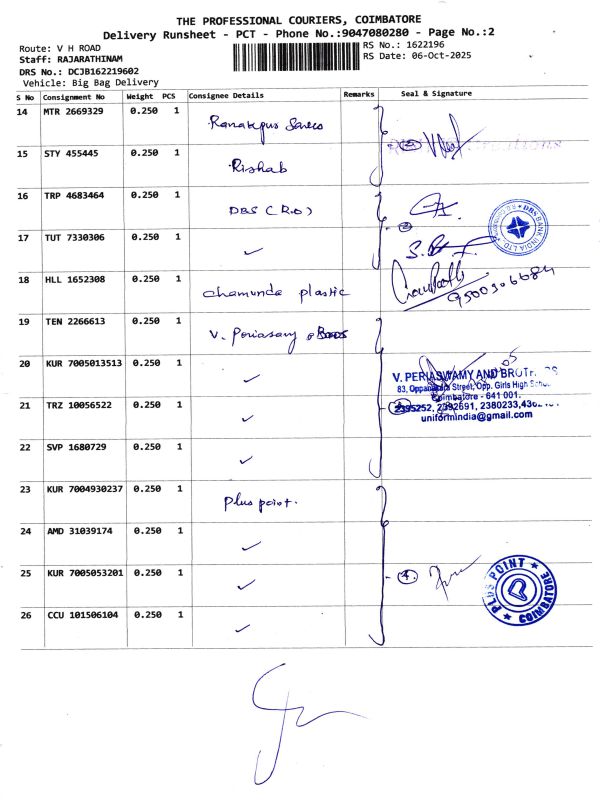 THE PROFESSIONAL COURIERS, COIMBATORE
Delivery Runsheet - PCT - Phone No.:9047080280 - Page No.:2
Route: V H ROAD
RS No.: 1622196
Staff: RAJARATHINAM
RS Date: 06-Oct-2025
DRS No.: DCJB162219602
Vehicle: Big Bag Delivery
S No Consignment No Weight PCS Consignee Details Remarks Seal & Signature
14 MTR 2669329 0.250 1
15 STY 455445 0.250 1 Rishab
16 TRP 4683464 0.250 1 DBS (R.O)
DBS BANK INDIA LTD
17 TUT 7330306 0.250 1 ✓
18 HLL 1652308 0.250 1 chamunda plastic
19 TEN 2266613 0.250 1 V. Periasamy & Bros
20 KUR 7005013513 0.250 1 ✓
V. PERIASWAMY AND BROTHERS
83, Oppanakara Street, Opp. Girls High School
Coimbatore - 641 001.
21 TRZ 10056522 0.250 1 ✓
2395252, 2392691, 2380233,
uniformindia@gmail.com
22 SVP 1680729 0.250 1 ✓
23 KUR 7004930237 0.250 1 Plus point.
24 AMD 31039174 0.250 1 ✓
25 KUR 7005053201 0.250 1 ✓ 4.
PLUS POINT COIMBATORE
26 CCU 101506104 0.250 1 ✓